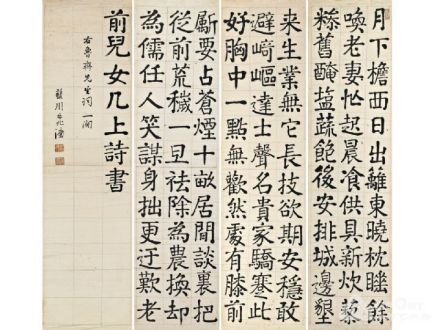 月下檐西日出籬東曉枕睡餘
喚老妻忙起晨飡供具新炊藜
糝舊醃鹽蔬飽後安排城邊墾
来生業無它長技欲期安穩敢
避崎嶇達士聲名貴家驕蹇此
好胸中一點無歡然處有膝前
斸要占蒼煙十畝居閒談裏把
從前荒穢一旦祛除為農換却
為儒任人笑謀身拙更迂歎老
前兒女几上詩書
右魯齋先生詞一闋